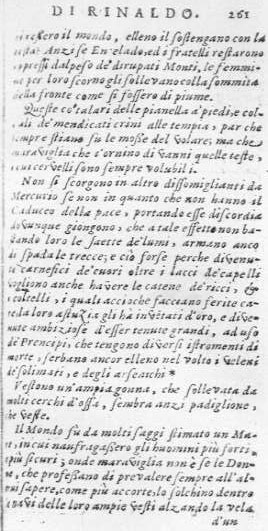 DI RINALDO. 261
il mondo, elleno il sostengono con la
testa: Anzi se Encelado, ed i fratelli restarono
oppressi dal peso de' dirupati Monti, le femmi-
ne per loro scorno gli sollevano colla sommità
della fronte come si fossero di piume.
Queste co' talari delle pianella a' piedi, e col-
ali de' mendicati crini alle tempia, par che
sempre stiano sù le mosse del volare; ma che
maraviglia che s'ornino di vanni quelle teste,
i cui cervelli sono sempre volubili.
Non si scorgono in altro dissomiglianti da
Mercurio se non in quanto che non hanno il
Caduceo della pace, portando esse discordia
dovunque giongono, che a tale effetto non ba-
stando loro le saette de' lumi, armano anco
di spada le treccie; e ciò forse perche divenu-
ti carnefici de' cuori oltre i lacci de' capelli
vogliono anche havere le catene de' ricci, &
i coltelli, i quali acciòche facciano ferite ca-
re da loro astuzia gli hà invètati d'oro, e dive-
nute ambiziose d'esser tenute grandi, ad uso
di Prencipi, che tengono diversi istromenti di
morte, serbano ancor elleno nel volto i veleni
de' solimati, e degli arsenichi *
Vestono un'ampia gonna, che sollevata da
molti cerchi d'ossa, sembra anzi padiglione,
che veste.
Il Mondo fù da molti saggi stimato un Ma-
re, in cui naufragassero gli huomini più forti,
e più sicuri; onde maraviglia non è se le Don-
ne, che professano di prevalere sempre all'al-
sapere, come più accorte, lo solchino dentro
navi delle loro ampie vesti alzando la vela
d'un